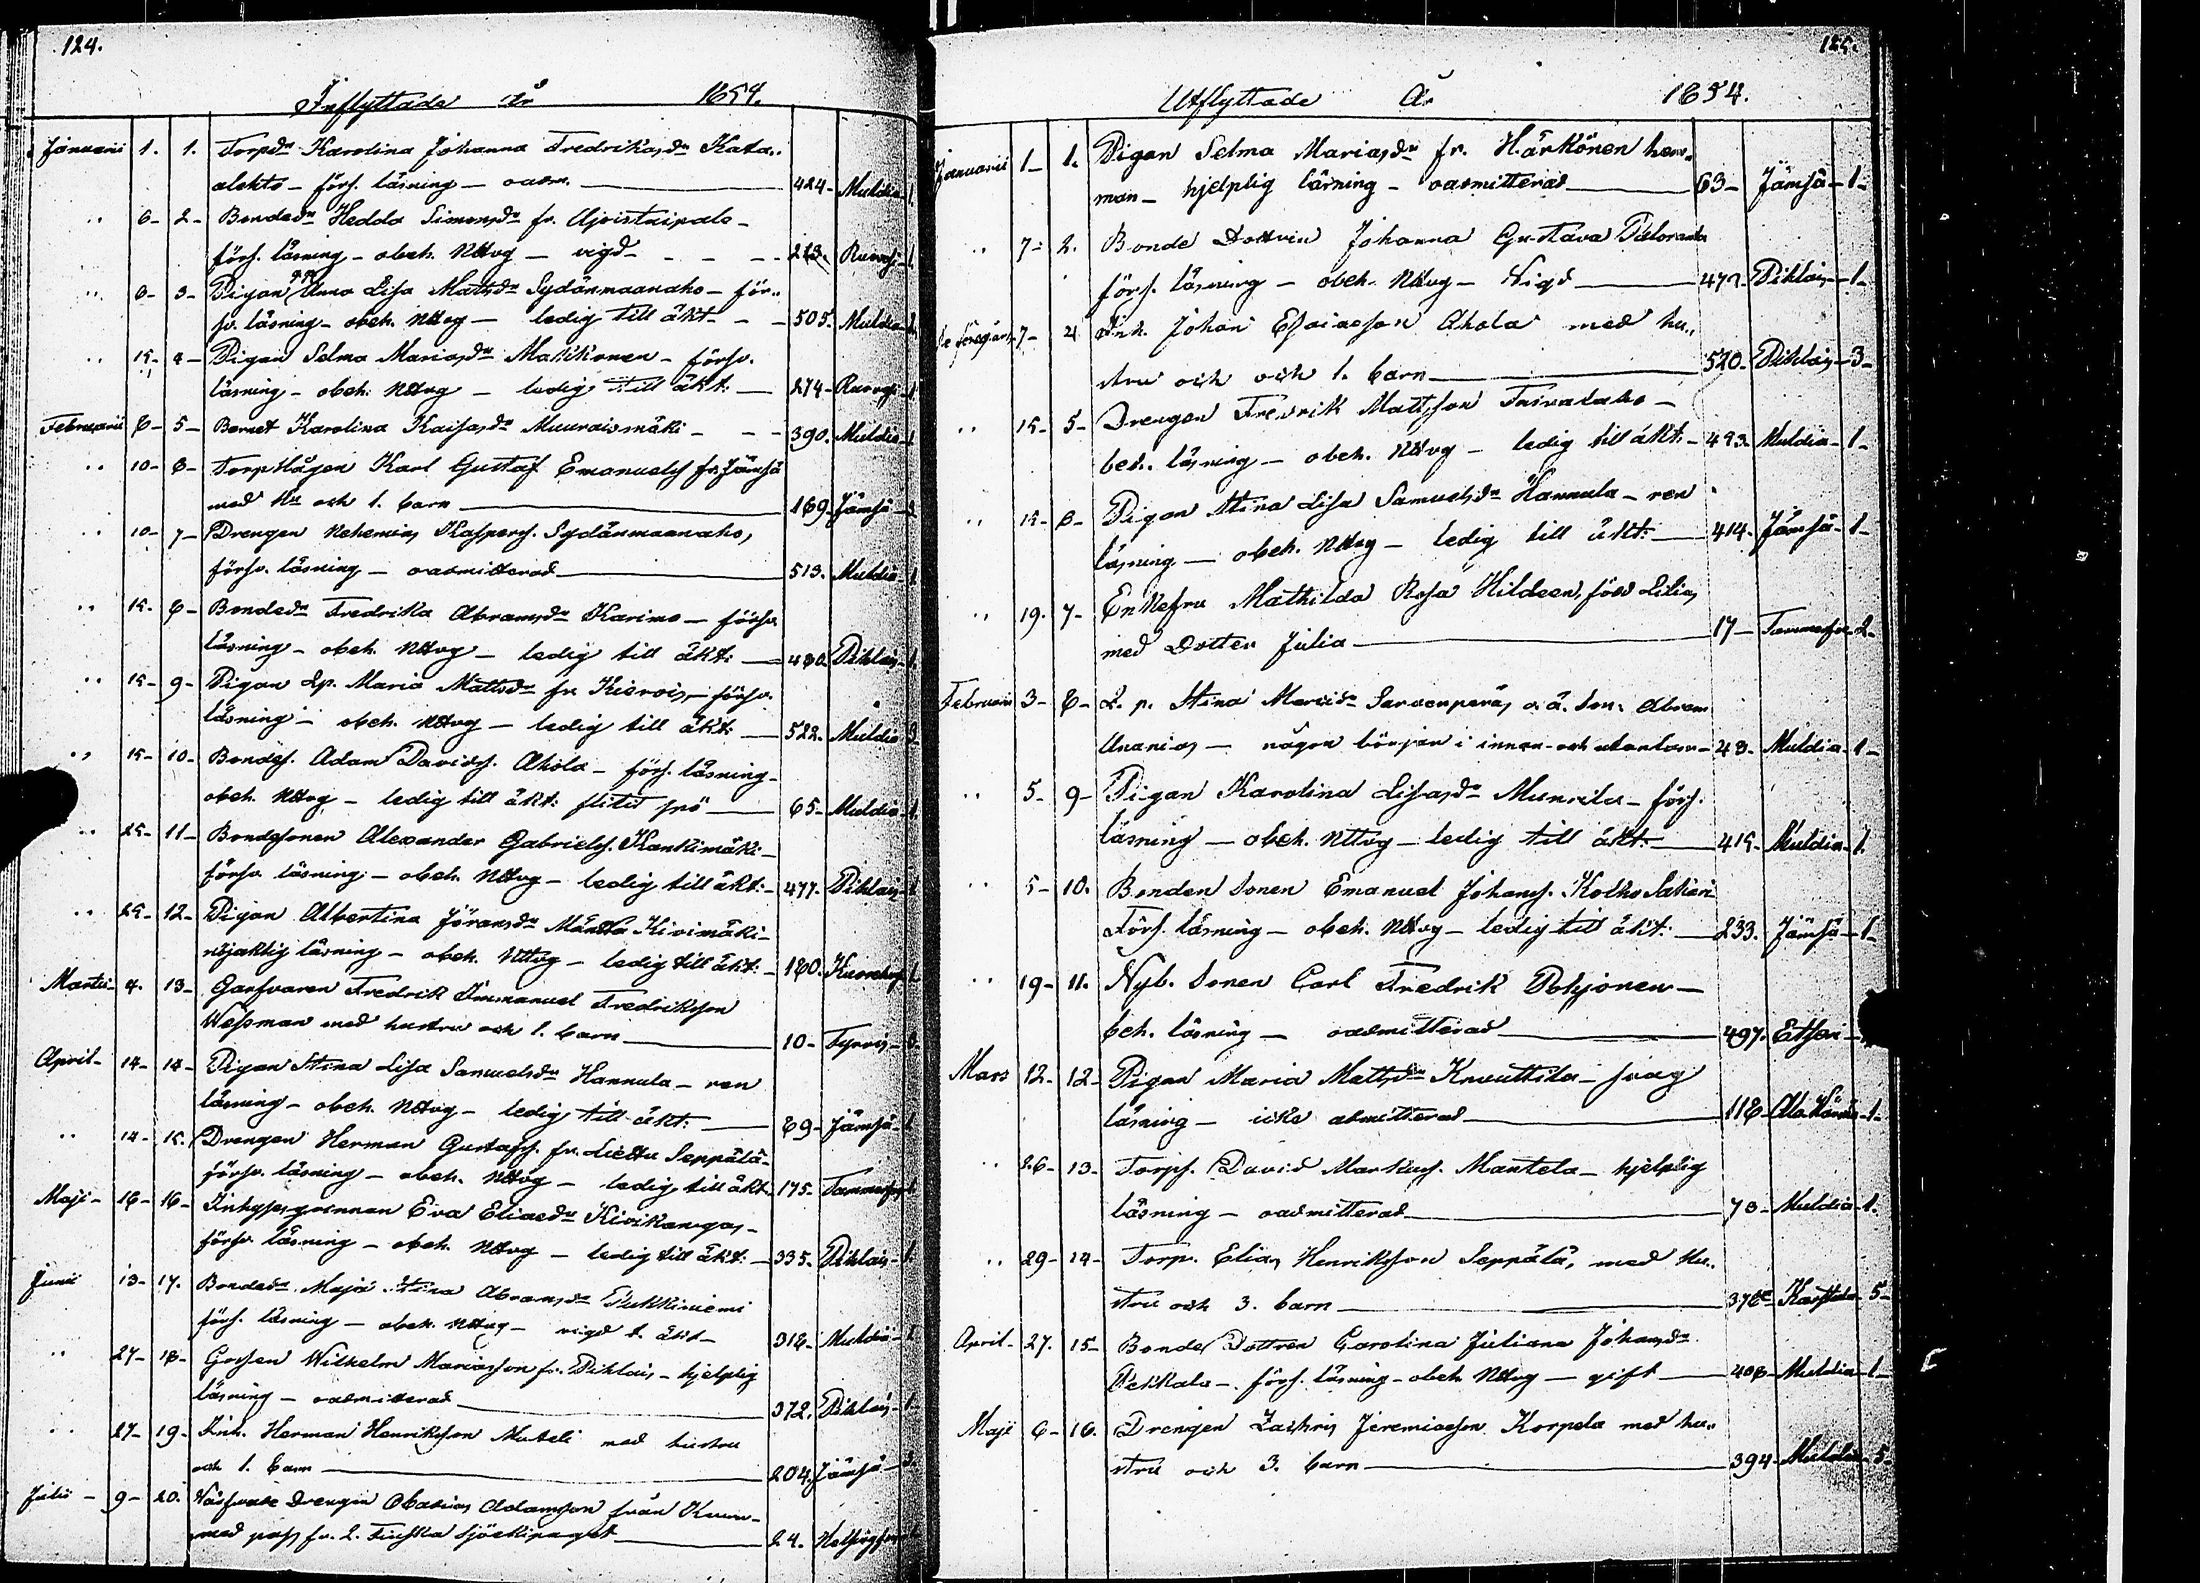 124.
Inflyttade År 1854.
Januarii 1. 1. Torpdr Karolina Johanna Fredriksdr Kata.
alokto - förs. läsning - oadm. 424 - Muldia - 1
" 6 - 2 - Bondedr Hedda Simonsdr fr.
förs. läsning - obeh. Nttvg - vigd - 213. Ruovesi - 1.
" 6 - 3 - Pigan Anna Lisa Mattsdr Sydänmaanaho - för..
sv. läsning - obeh. Nttvg - ledig till äkt. - 505. Muldia
" 15 - 4 - Pigan Selma Mariasdr Makkonen - försv.
läsning - obeh. Nttvg - ledig till äkt. - 274 - Ruovesi - 1
Februarii 6 - 5 - Barnet Karolina Kaisasdr Muuraismäki - 390. Muldia - 1
" 10 - 6 - Torp Karl Gustaf Emanuelss. fr. Jämsä
med Hu och 1. barn 169 - Jämsä - 3
" 10 - 7 - Drengen Nehemias Kaspers. Sydänmaanaho,
försv. läsning - oadmitterad 513. Muldia - 1
" 15. 8 - Bondedr Fredrika Abramsdr Karimo - försv.
läsning - obeh. Nttvg - ledig till äkt: 480. Pihlais - 1.
" 15 - 9 - Pigan Lp. Maria Mattsdr fr. - försv.
läsning - obeh. Nttvg - ledig till äkt: 522. Muldia
" 15 - 10 - Bondes. Adam Davids. Ahola - förs. läsning -
obeh. Nttvg - ledig till äkt: slitit spö - 65 - Muldia - 1.
" 25 - 11 - Bondesonen Alexander Gabriels. Kankimäki -
försv. läsning - obeh. Nttvg - ledig till äkt: - 477. Pihlais - 1
" 25 - 12 - Pigan Albertina Göransdr Mänttä Kivimäki -
nöjaktig läsning - obeh. Nttvg - ledig till äkt: - 180.
Martii - 4. 13 - Garfvaren Fredrik Emmanuel Fredriksson
Wessman med hustru och 1. barn 10 - Tyrvis - 3.
April - 14 - 14 - Pigan Stina Lisa Samuelsdr Hannula - ren
läsning - obeh. Nttvg - ledig till äkt. 69 - Jämsä - 1
" 14 - 15. Drengen Herman Gustafss. fr. Seppälä -
försv. läsning - obeh. Nttvg - ledig till äkt. 175 - Tammerfors
Maji - 16 - 16 - Inhysesqvinnan Eva Eliaedr Kivikangas -
försv. läsning - obeh. Nttvg - ledig till äkt: - 335. Pihlais - 1.
Junii 13 - 17. Bondedr Maja Stina Abramsdr Pukkiniemi
förs. läsning - obeh. Nttvg - vigd t. äkt - 318 - Muldia - 1.
" 27 - 18 - Gossen Wilhelm Mariasson fr. Pihlais - hjelplig
läsning - oadmitterad 372. Pihlais - 1 -
" 27 - 19 - Inh. Herman Henriksson Muteli med hustru
och 1. barn 204. Jämsä - 3.
Julii - 9 - 20. Drengen Obadias Adamsson från
med pass fr. 2. Finska Sjöekipaget 24. Helsingfors

125.
Utflyttade År 1854.
Januarii 1 - 1. Pigan Selma Mariasdr fr. Härkönen hem.
man - hjelplig läsning - oadmitterad 63 - Jämsä - 1 -
" 7 - 2. Bonde Dottren Johanna Gustava
förs. läsning - obeh. Nttvg - Vigd 472. Pihlais - 1 -
7 - 4 Inh. Johan Esaiasson Ahola med hu..
stru och och 1. barn 520 - Pihlais - 3 -
" 15 - 5 - Drengen Fredrik Mattsson Taivalaho -
bek. läsning - obeh. Nttvg - ledig till äkt: - 493. Muldia - 1 -
" 15 - 6 - Pigan Stina Lisa Samuelsdr Hannula - ren
läsning - obeh. Nttvg - ledig till äkt: 414. Jämsä - 1 -
" 19. 7 - Enkefru Mathilda Rosa Hildeen, född Lilius
med Dotter Julia 17 - Tammerfors - 2 -
Februari 3 - 8 - L. p. Stina Mariedr Sarvenperäs o. ä. son. Abram
Ananias - någon början i innan- och utanläsn - 43 - Muldia - 1 -
" 5 - 9 - Pigan Karolina Lisasdr Munrila - förs.
läsning - obeh. Nttvg - ledig till äkt. 415 - Muldia - 1.
" 5 - 10. Bonden Sonen Emanuel Johans.
Förs. läsning - obeh. Nttvg - ledig till äkt: 233. Jämsä - 1 -
" 19 - 11. Nyb. Sonen Carl Fredrik Pohjonen -
beh. läsning - oadmitterad 497. Etseri -
Mars 12 - 12 - Pigan Maria Mattsdr Knuuttila - svag
läsning - icke admitterad 118 - - 1 -
" 26 - 13 - Torps. David Markus. Mantela - hjelplig
läsning - oadmitterad 73 - Muldia - 1.
" 29 - 14 - Torp. Elias Henriksson Seppälä, med Hu..
stru och 3. barn 378 - Karstula - 5 -
April - 27. 15 - Bonde Dottren Carolina Juliana Johansdr
Pekkala - förs. läsning - obeh Nttvg - gift 408 - Muldia - 1 -
Maji 6 - 16. Drengen Zachris Jeremiasson Korpela med hu..
stru och 3. barn 394 - Muldia - 5 -